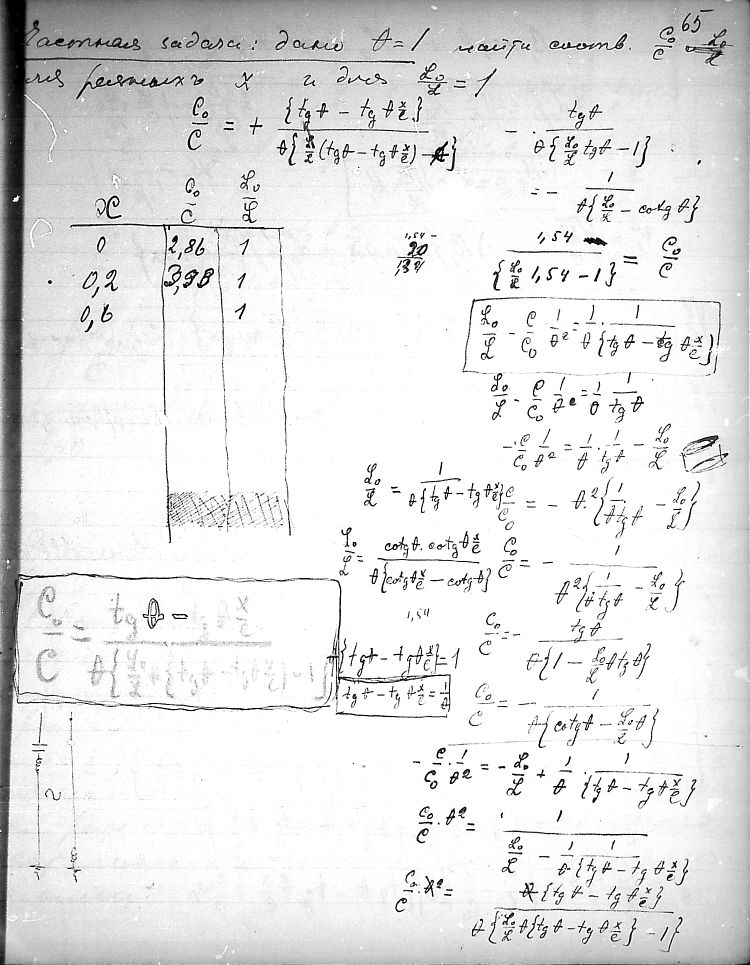 65
Частная задача: дано θ=1 найти соотв. C₀/C L₀/L
для разныхъ x и для L₀/L = 1
C₀/C = + {tgθ − tgθ x/e} / θ{L₀/L (tgθ − tgθ x/e) − 1}
− tgθ / θ{L₀/L tgθ − 1}
= − 1 / θ{L₀/L − cotgθ}
x C₀/C L₀/L
0 2,86 1
0,2 3,98 1
0,6 1
1,54
20
1,54 / {L₀/L 1,54 − 1} = C₀/C
L₀/L − C/C₀ 1/θ² = 1/θ · 1/{tgθ − tgθ x/e}
L₀/L − C/C₀ 1/θ² = 1/θ 1/tgθ
− C/C₀ 1/θ² = 1/θ · 1/tgθ − L₀/L
L₀/L = 1 / θ{tgθ − tgθ x/e}
C/C₀ = − θ²{1/θtgθ − L₀/L}
L₀/L = cotgθ · cotgθ x/e / θ{cotgθ x/e − cotgθ}
C₀/C = − 1 / θ²{1/θtgθ − L₀/L}
C₀/C = tgθ −
1,54
C₀/C = − tgθ / θ{1 − L₀/L θtgθ}
θ{tgθ − tgθ x/e} = 1
tgθ − tgθ x/e = 1/θ
C₀/C = − 1 / θ{cotgθ − L₀/L θ}
− C/C₀ · 1/θ² = − L₀/L + 1/θ · 1/{tgθ − tgθ x/e}
C₀/C · θ² = 1 / L₀/L − 1/θ 1/{tgθ − tgθ x/e}
C₀/C · θ² = θ{tgθ − tgθ x/e} / θ{L₀/L θ{tgθ − tgθ x/e} − 1}